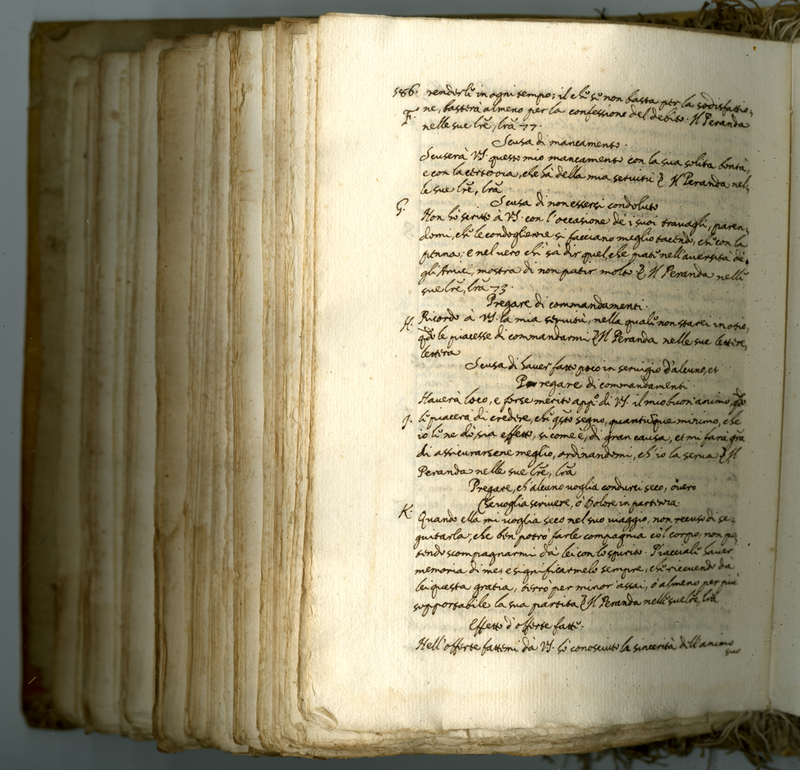 586. renderli in ogni tempo; il che se non basta per la sodisfattio-
F. ne, basterà almeno per la confessione del debito. Il Peranda
nelle sue lre, lrã 77.
Scusa di mancamento.
Scuserà VS. questo mio mancamento con la sua solita bontà,
e con la certezza, che hà della mia servitù. Il Peranda nel-
le sue lre, lrã
Scusa di non essersi condoluto
G. Non hò scritto à VS. con l'occasione de i suoi travagli, paren-
domi, che le condoglienze si facciano meglio tacendo, che con la
penna; e nel vero chi sà dir quel, che patì nell'aversità de
gli Amici, mostra di non patir molto. Il Peranda nelle
sue lre, lrã 73.
Pregare di commandamenti.
H. Ricordo à VS. la mia servitù, nella quale non starei in otio,
qdo le piacesse di commandarmi. Il Peranda nelle sue lettere,
lettera
Scusa di haver fatto poco in servigio d'alcuno, et
Pregare di commandamenti.
Haverà loco, e forse merito app.o di VS. il mio buon animo, qdo
J. le piacerà di credere, che qsto segno, quantunque minimo, che
io le ne dò, sia effetto, si come è, di gran causa, et mi farà grã
di assicurarsene meglio, ordinandomi, ch'io la serva. Il
Peranda nelle sue lre, lrã
Pregare, ch'alcuno voglia condurci seco, overo
che voglia scrivere, ò dolore in partenza.
K. Quando ella mi voglia seco nel suo viaggio, non recuso di se-
guitarla; che ben potrò farle compagnia col corpo, non po-
tendo scompagnarmi dà lei con lo spirito. Piacciale haver
memoria di me, e significarmelo sempre, che ricevendo dà
lei questa gratia, terrò per minor assai, ò almeno per più
sopportabile la sua partita. Il Peranda nelle sue lre, lrã
Effetto d'offerte fatte.
Nell'offerte fattemi dà VS. hò conosciuto la sincerità dell'animo
suo